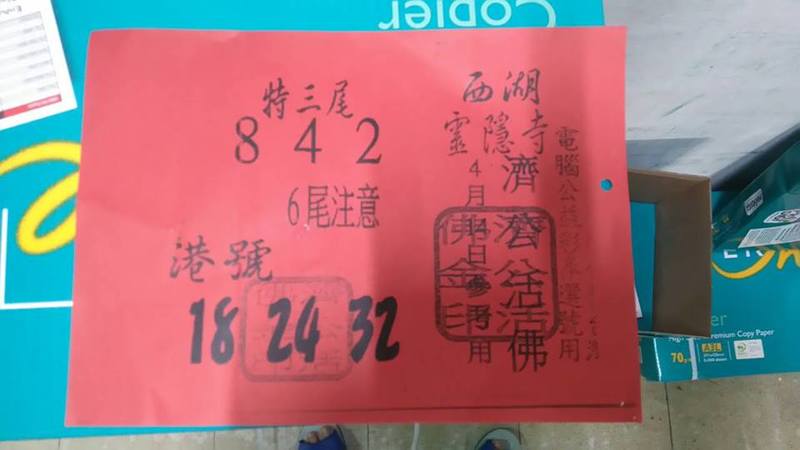 特三尾
8 4 2
6尾注意
港號
18 24 32
西湖
靈隱寺
濟公活佛
電腦公益彩券選號用
Copier
Premium Copy Paper
A3L
70g